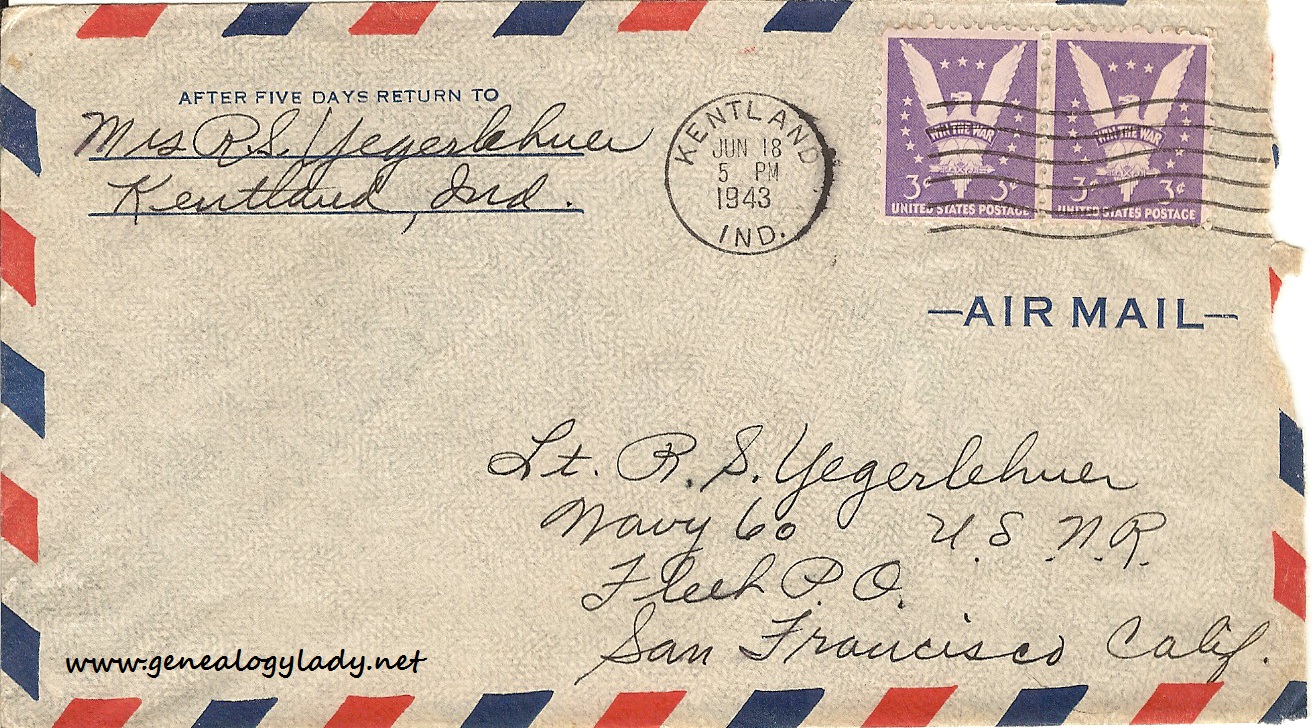 AFTER FIVE DAYS RETURN TO
Mrs R.S. Yegerlehner
Kentland, Ind.
KENTLAND
JUN 18
5 PM
1943
IND.
WIN THE WAR
3¢ 3¢
UNITED STATES POSTAGE
WIN THE WAR
3¢ 3¢
UNITED STATES POSTAGE
—AIR MAIL—
Lt. R. S. Yegerlehner
Navy 60 U.S.N.R.
Fleet P.O.
San Francisco Calif.
www.genealogylady.net